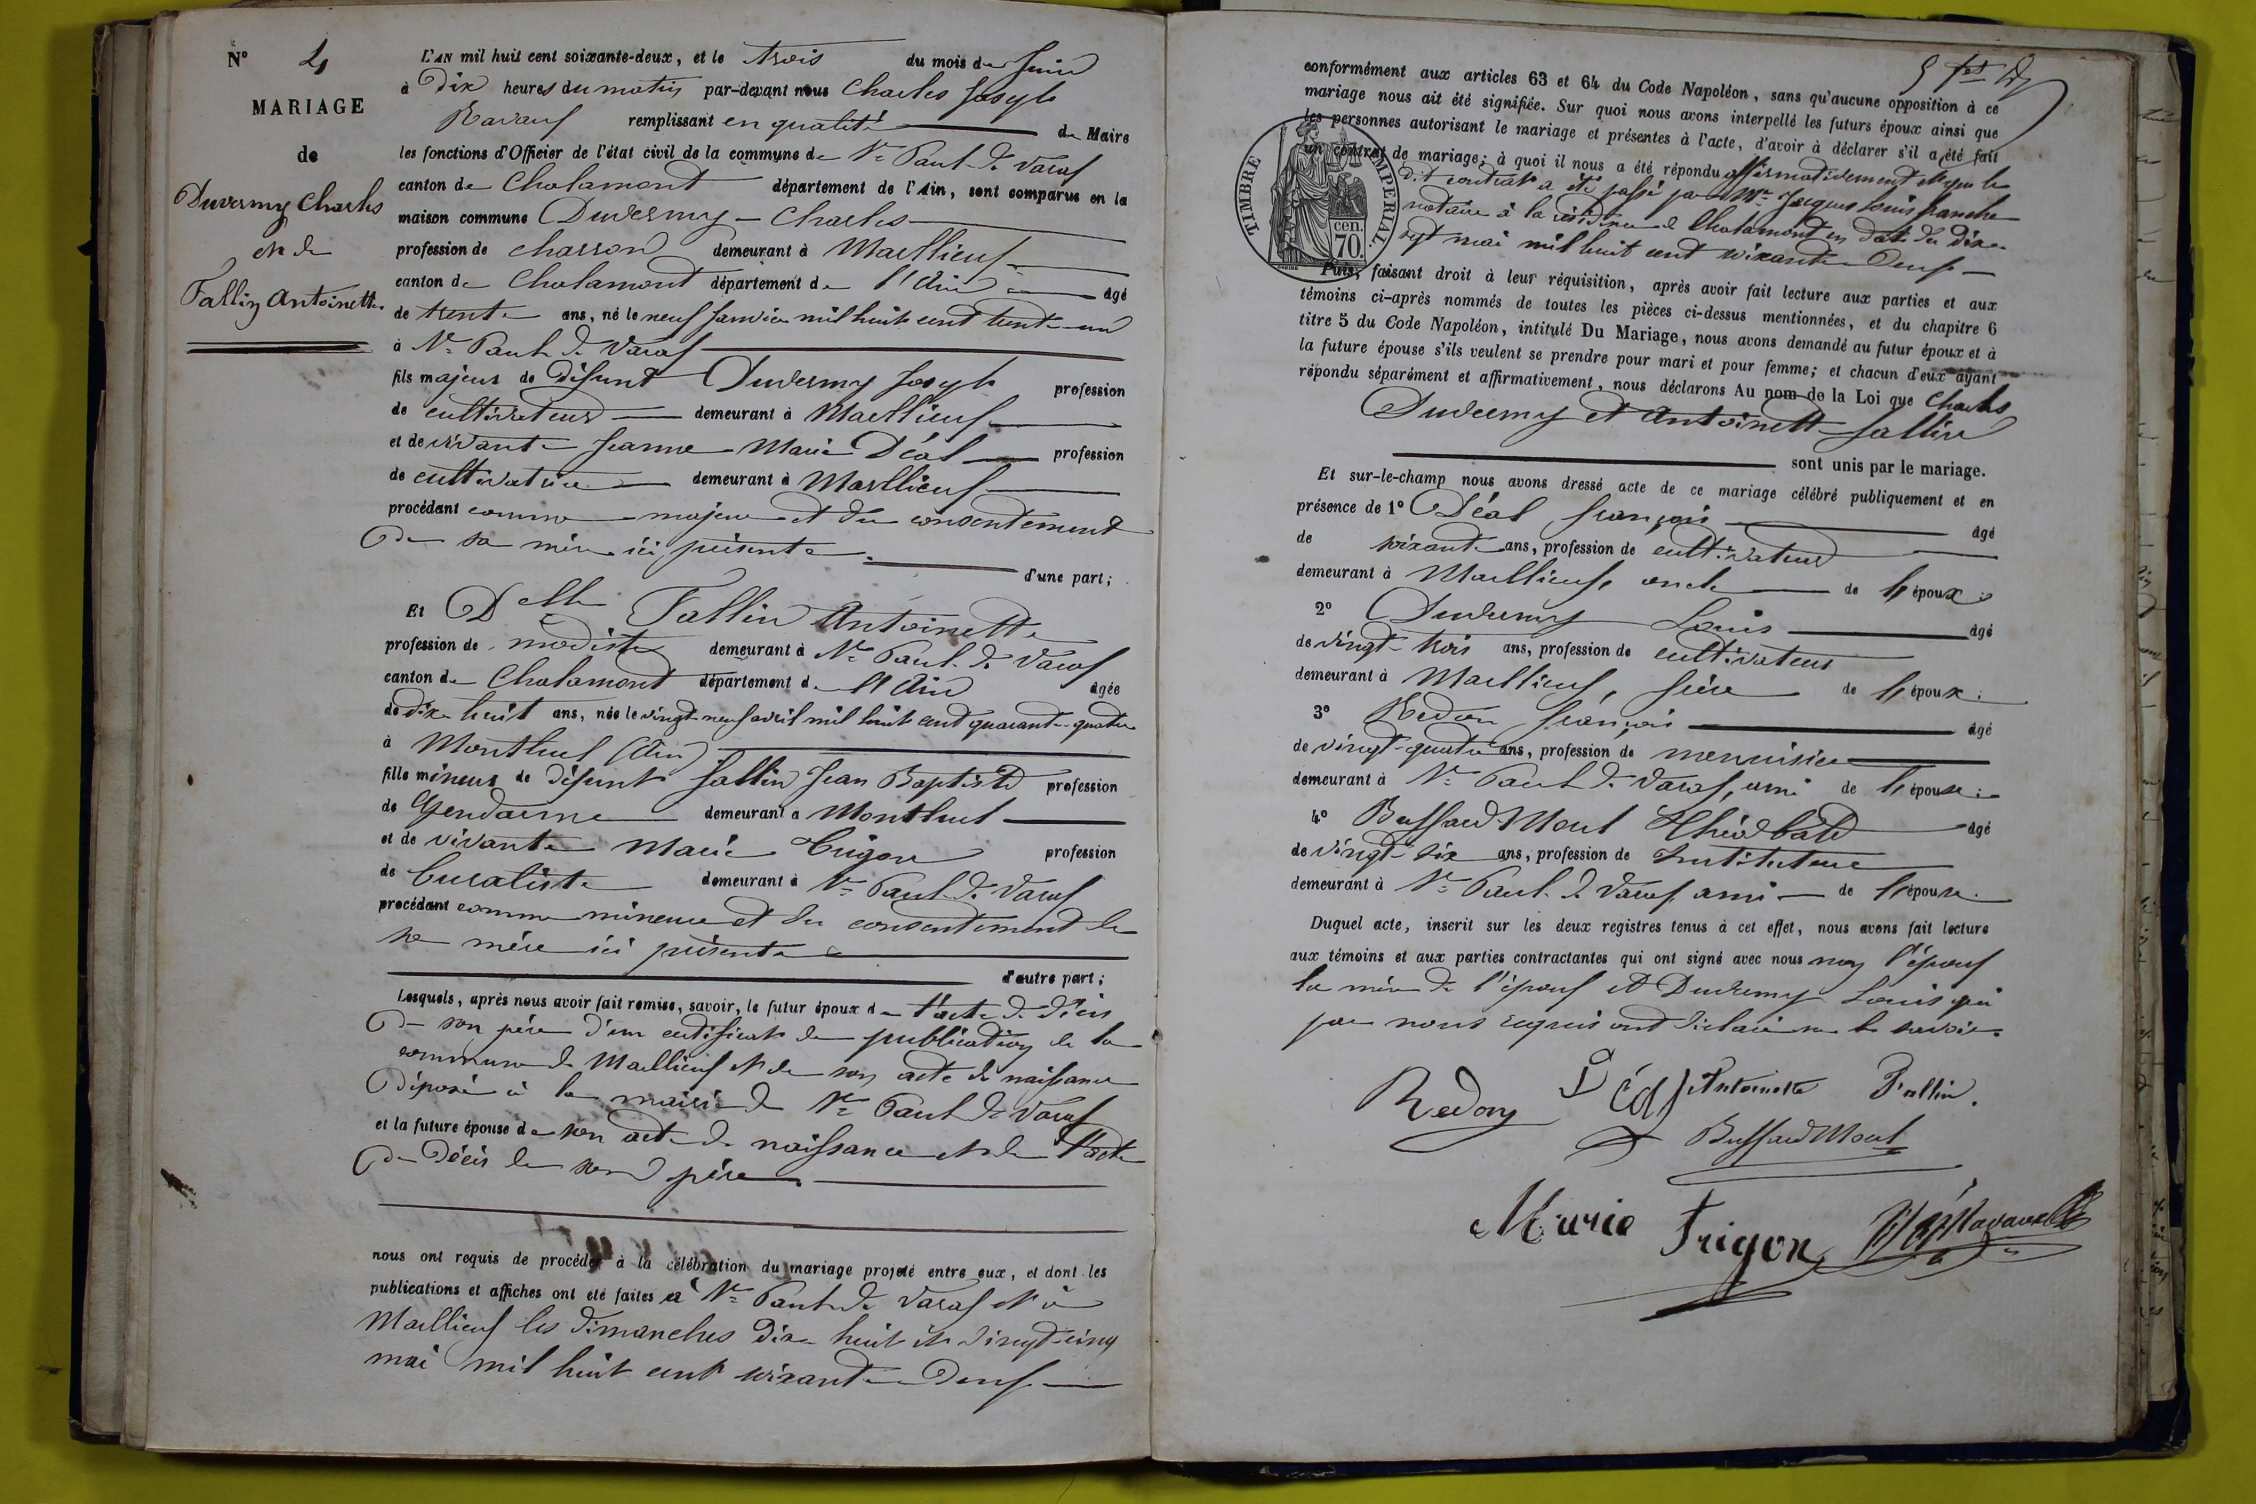 N° 4
MARIAGE
de
Duvermy Charles
et de
Fallin Antoinette
L'AN mil huit cent soixante-deux, et le trois du mois de Juin
à Dix heures du matin par-devant nous Charles Joseph
Ravaux remplissant en qualité de Maire
les fonctions d'Officier de l'état civil de la commune de St Paul de Varax
canton de Chalamont département de l'Ain, sont comparus en la
maison commune Duvermy Charles
profession de charron demeurant à Marllieux
canton de Chalamont département de l'Ain âgé
de trente ans, né le neuf Janvier mil huit cent trente-un
à St Paul de Varax
fils majeur de défunt Duvermy Joseph profession
de cultivateur demeurant à Marllieux
et de vivante Jeanne Marie Déal profession
de cultivatrice demeurant à Marllieux
procédant comme majeur et du consentement
De sa mère ici présente
d'une part;
Et Delle Fallin Antoinette
profession de modiste demeurant à St Paul de Varax
canton de Chalamont département de l'Ain âgée
de dix huit ans, née le vingt-neuf avril mil huit cent quarante-quatre
à Montluel (Ain)
fille mineur de défunt Fallin Jean Baptiste profession
de Gendarme demeurant à Montluel
et de vivante Marie Trigon profession
de buraliste demeurant à St Paul de Varax
procédant comme mineure et du consentement de
sa mère ici présente
d'autre part;
Lesquels, après nous avoir fait remise, savoir, le futur époux de l'acte de décès
De son père d'un certificat de publication de la
commune de Marllieux et de son acte de naissance
Déposé à la mairie de St Paul de Varax
et la future épouse de son acte de naissance et de l'acte
De Décès de son père
nous ont requis de procéder à la célébration du mariage projeté entre eux, et dont les
publications et affiches ont été faites à St Paul de Varax et à
Marllieux les dimanches dix huit et vingt-cinq
mai mil huit cent soixante Deux
conformément aux articles 63 et 64 du Code Napoléon, sans qu'aucune opposition à ce
mariage nous ait été signifiée. Sur quoi nous avons interpellé les futurs époux ainsi que
les personnes autorisant le mariage et présentes à l'acte, d'avoir à déclarer s'il a été fait
un contrat de mariage; à quoi il nous a été répondu affirmativement et que le
dit contrat a été passé par Me Jacques Louis franche
notaire à la résidence de Chalamont en date du dix
sept mai mil huit cent soixante Deux
TIMBRE IMPERIAL.
70 cen.
Puis, faisant droit à leur réquisition, après avoir fait lecture aux parties et aux
témoins ci-après nommés de toutes les pièces ci-dessus mentionnées, et du chapitre 6
titre 5 du Code Napoléon, intitulé Du Mariage, nous avons demandé au futur époux et à
la future épouse s'ils veulent se prendre pour mari et pour femme; et chacun d'eux ayant
répondu séparément et affirmativement, nous déclarons Au nom de la Loi que Charles
Duvermy et Antoinette Fallin
sont unis par le mariage.
Et sur-le-champ nous avons dressé acte de ce mariage célébré publiquement et en
présence de 1° Déal françois âgé
de soixante ans, profession de cultivateur
demeurant à Marllieux, oncle de l'époux;
2° Duvermy Louis âgé
de vingt-trois ans, profession de cultivateur
demeurant à Marllieux, frère de l'époux;
3° Redon françois âgé
de vingt-quatre ans, profession de menuisier
demeurant à St Paul de Varax, ami de l'épouse;
4° Bussard Mout Théodbald âgé
de vingt-six ans, profession de Instituteur
demeurant à St Paul de Varax ami de l'épouse.
Duquel acte, inscrit sur les deux registres tenus à cet effet, nous avons fait lecture
aux témoins et aux parties contractantes qui ont signé avec nous non l'époux
la mère de l'époux et Duvermy Louis qui
par nous requis ont déclaré ne le savoir.
Redon Déal Antoinette Fallin.
Bussard Mout
Marie Trigon